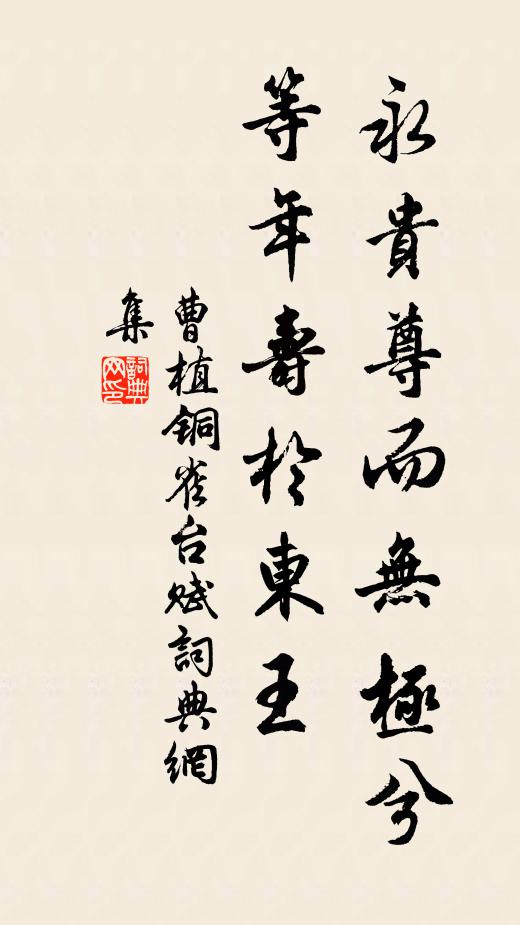 永貴尊而無極兮
等年壽於東王
曹植銅雀台賦詞典網
集
詞典
网印